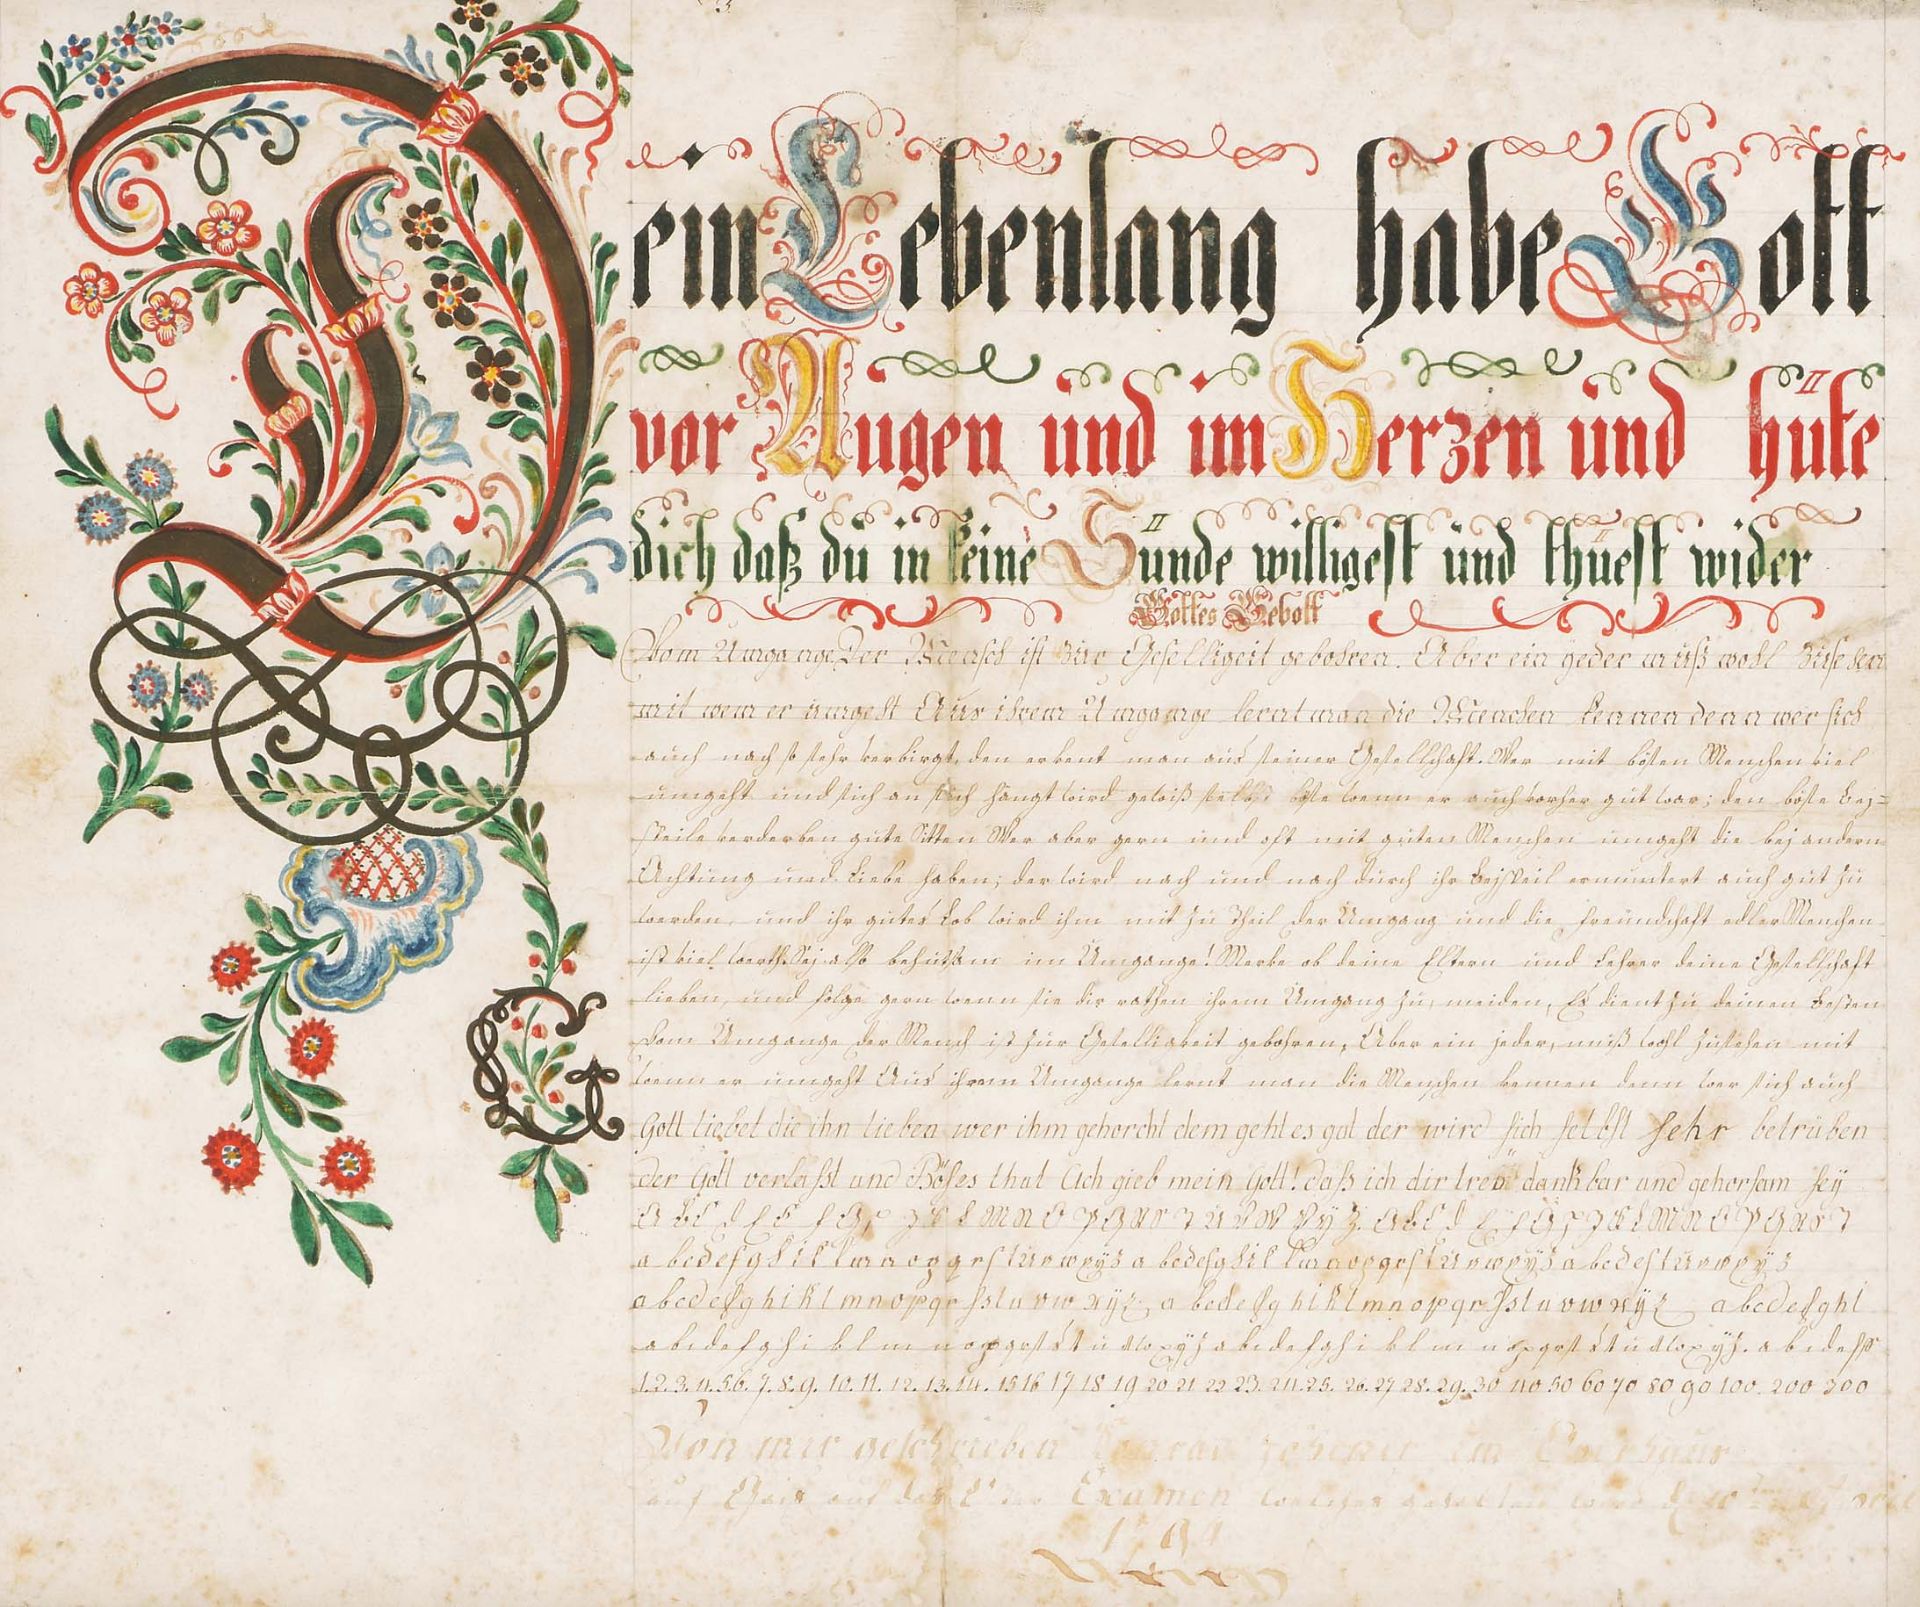 Dein Lebenlang habe Gott
vor Augen und im Herzen und hüte
dich daß du in keine Sünde willigest und thuest wider
Gottes Gebott
Vom Umgange Der Mensch ist zur Geselligeit gebohren. Aber ein yeder muß wohl zusehen
mit wem er umgeht Aus ihrem Umgange lernt man die Menschen kennen denn wer sich
auch noch so sehr verbirgt, den erkent man aus seiner Gesellschaft. Wer mit bösen Menchen viel
umgeht und sich an sich hängt wird gewiß selbst böse wenn er auch vorher gut war; den böse Bej=
speile verderben gute Sitten Wer aber gern und oft mit guten Menchen umgeht die bej andern
Achtung und Liebe haben; der wird nach und nach durch ihr Bejspeil ermuntert auch gut zu
werden, und ihr gutes Lob wird ihm mit zu Theil der Umgang und die Freundchaft edler Menchen
ist viel werth. Sej also behutsam im Umgange! Merke ob deine Eltern und Lehrer deine Gesellschaft
lieben, und folge gern wenn sie dir rathen ihrem Umgang zu meiden, Es dient zu deinen Besten
Vom Umgange der Mench ist zur Geselligkeit gebohren, Aber ein jeder, muß wohl zusehen mit
wem er umgeht Aus ihrem Umgange lernt man die Menschen kennen denn wer sich auch
Gott liebet die ihn lieben wer ihm gehorcht dem geht es gut der wird sich selbst sehr betrüben
der Gott verlaßt und Böses thut Ach gieb mein Gott! daß ich dir treü dankbar und gehorsam sey
A B C D E F G H J K L M N O P Q R S T U V W X Y Z. A B C D E F G H J K L M N O P Q R S T
a b c d e f g h i k l m n o p q r s t u v w x y z a b c d e f g h i k l m n o p q r s t u v w x y z a b c d e s t u v w x y z
a b c d e f g h i k l m n o p q r ſ s t u v w x ÿ z, a b c d e f g h i k l m n o p q r ſ s t u v w x ÿ z a b c d e f g h i
a b c d e f g h i k l m n o p q r s t u v w x y z a b c d e f g h i k l m n o p q r s t u v w x y z. a b c d e f
1. 2. 3. 4. 5. 6. 7. 8. 9. 10. 11. 12. 13. 14. 15 16 17 18 19 20 21 22 23. 24. 25. 26. 27 28. 29. 30 40 50 60 70 80 90 100. 200 300
Von mir geschrieben im
auf Gais auf das Examen welches gehalten wird